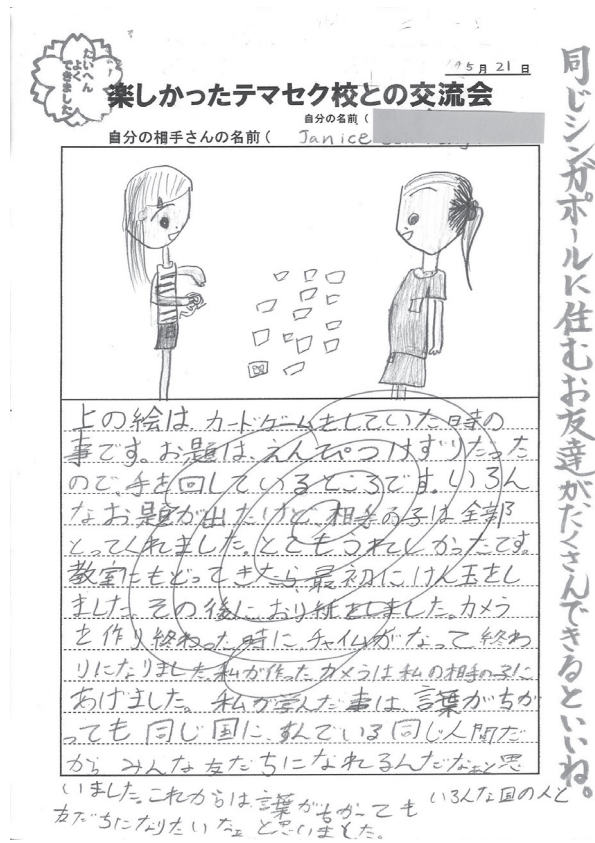 たいへん
よく
できました
5月21日
楽しかったテマセク校との交流会
自分の名前(
自分の相手さんの名前( Janice
上の絵は、カードゲームをしていた時の
事です。お題は、えんぴつけずりだった
ので、手を回しているところです。いろん
なお題が出たけど、相手の子は全部
とってくれました。とてもうれしかったです。
教室にもどってきたら、最初にけん玉をし
ました。その後に、おり紙をしました。カメラ
を作り終わった時に、チャイムがなって終わ
りになりました。私が作ったカメラは私の相手の子に
あげました。私が学んだ事は、言葉がちが
っても同じ国に、すんでいる同じ人間だ
から みんな友だちになれるんだなぁと思
いました。これからは、言葉がちがっても いろんな国の人と
友だちになりたいなぁと思いました。
同じシンガポールに住むお友達がたくさんできるといいね。